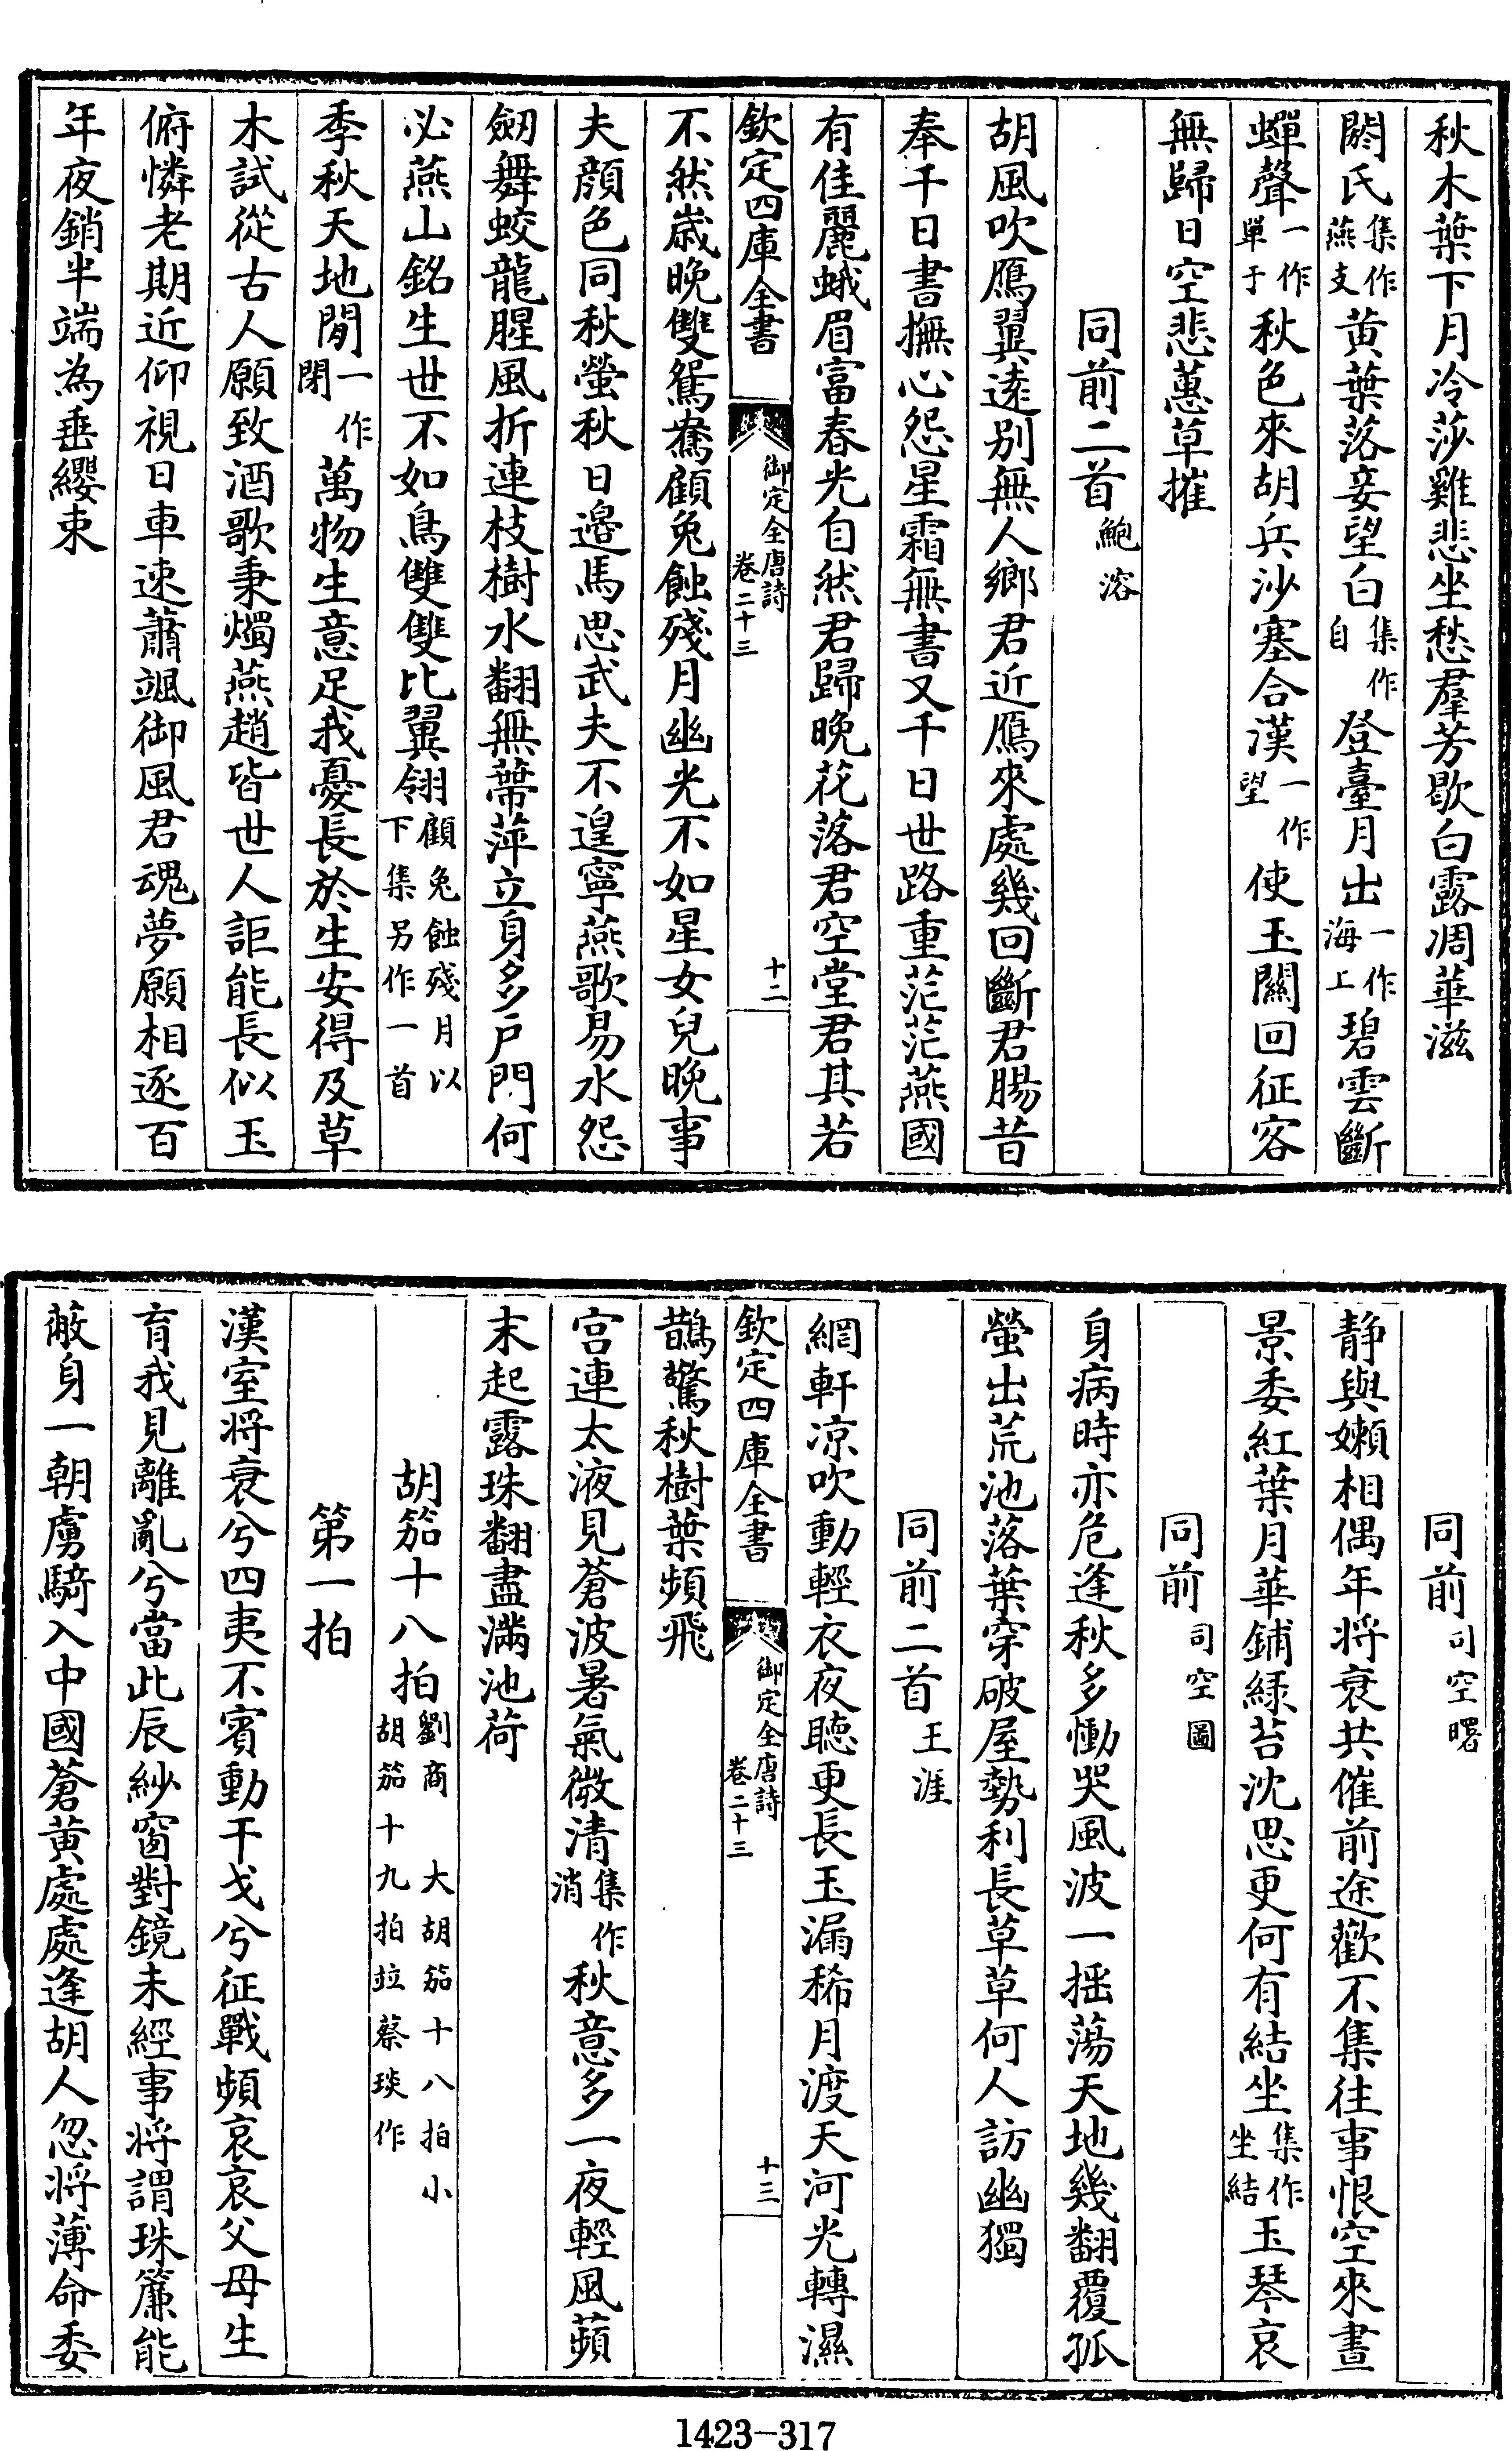 秋木葉下月冷莎雞悲坐愁羣芳歇白露凋華滋
閼氏集作燕支黄葉落妾望白集作自登臺月出一作海上碧雲斷
蟬聲一作單于秋色來胡兵沙塞合漢一作望使玉關回征客
無歸日空悲蕙草摧
同前二首鮑溶
胡風吹鴈翼遠别無人鄉君近鴈來處幾回斷君腸昔
奉千日書撫心怨星霜無書又千日世路重茫茫燕國
有佳麗蛾眉富春光自然君歸晚花落君空堂君其若
欽定四庫全書
御定全唐詩
卷二十三
十二
不然歳晚雙鴛鴦顧兔蝕殘月幽光不如星女兒晚事
夫顔色同秋螢秋日邉馬思武夫不遑寧燕歌易水怨
劒舞蛟龍腥風折連枝樹水翻無蔕萍立身多户門何
必燕山銘生世不如鳥雙雙比翼翎顧兔蝕殘月以下集另作一首
季秋天地閒一作閉萬物生意足我憂長於生安得及草
木試從古人願致酒歌秉燭燕趙皆世人詎能長似玉
俯憐老期近仰視日車速蕭颯御風君魂夢願相逐百
年夜銷半端為垂纓束
同前司空曙
静與嬾相偶年將衰共催前途歡不集往事恨空來晝
景委紅葉月華鋪緑苔沈思更何有結坐集作坐結玉琴哀
同前司空圖
身病時亦危逢秋多慟哭風波一揺蕩天地幾翻覆孤
螢出荒池落葉穿破屋勢利長草草何人訪幽獨
同前二首王涯
網軒凉吹動輕衣夜聴更長玉漏稀月渡天河光轉濕
欽定四庫全書
御定全唐詩
卷二十三
十三
鵲驚秋樹葉頻飛
宫連太液見蒼波暑氣微清集作消秋意多一夜輕風蘋
末起露珠翻盡滿池荷
胡笳十八拍劉商 大胡笳十八拍小胡笳十九拍竝蔡琰作
第一拍
漢室將衰兮四夷不賓動干戈兮征戰頻哀哀父母生
育我見離亂兮當此辰紗窗對鏡未經事將謂珠簾能
蔽身一朝虜騎入中國蒼黄處處逢胡人忽將薄命委
1423-317